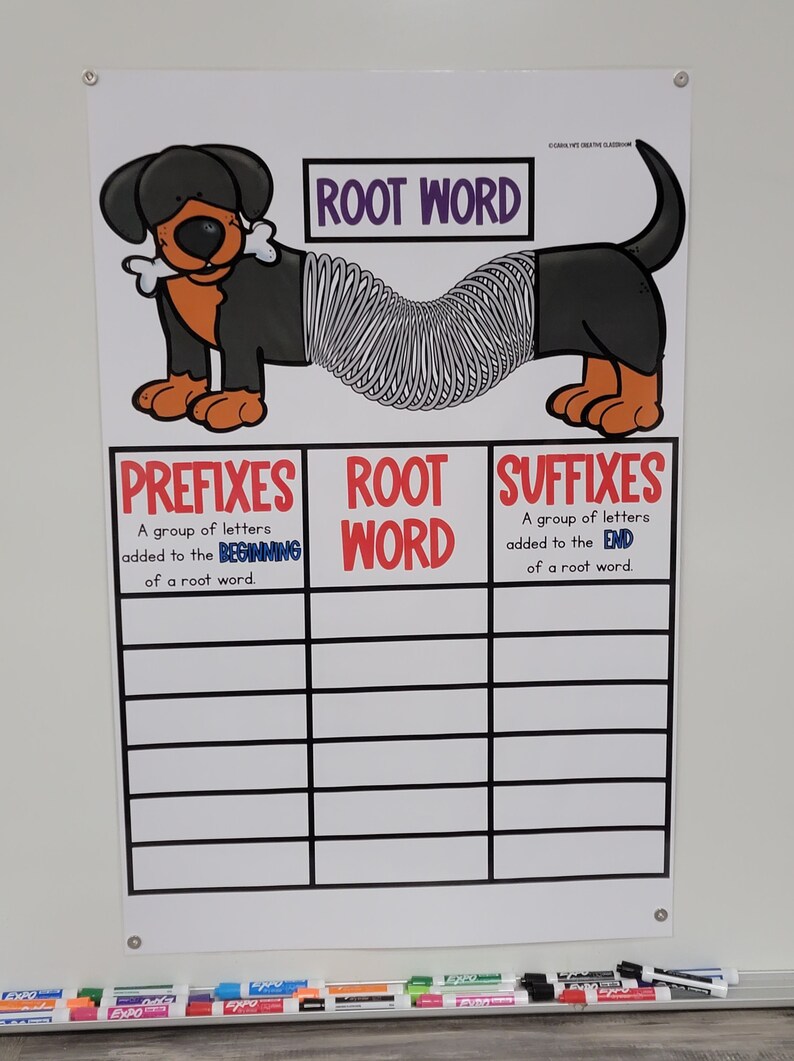 ©CAROLYN'S CREATIVE CLASSROOM
ROOT WORD
PREFIXES
A group of letters
added to the BEGINNING
of a root word.
ROOT
WORD
SUFFIXES
A group of letters
added to the END
of a root word.
EXPO
EXPO
EXPO
EXPO
EXPO
EXPO
EXPO
EXPO